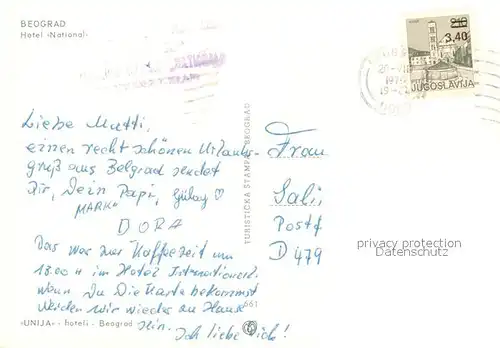 BEOGRAD
Hotel »National«
2.10
3,40
JUGOSLAVIJA
Liebe Mutti,
einen recht schönen Urlaubs-
gruß aus Belgrad sendet
Dir, Dein Papi, Gülay ♡
MARK
DORA
Das war zur Kaffeezeit um
18.00 H im Hotel International.
Wenn Du Die Karte bekommst
werden wir wieder zu Hause
sein.
Ich liebe Dich!
Frau
Salii
Postf
D 479
privacy protection
Datenschutz
TURISTIČKA ŠTAMPA BEOGRAD
661
»UNIJA« - hoteli - Beograd